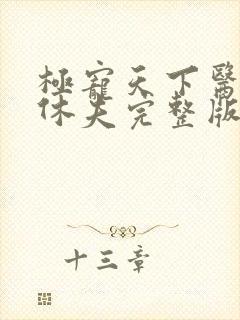 極寵天下醫
休夫完整版
十三章